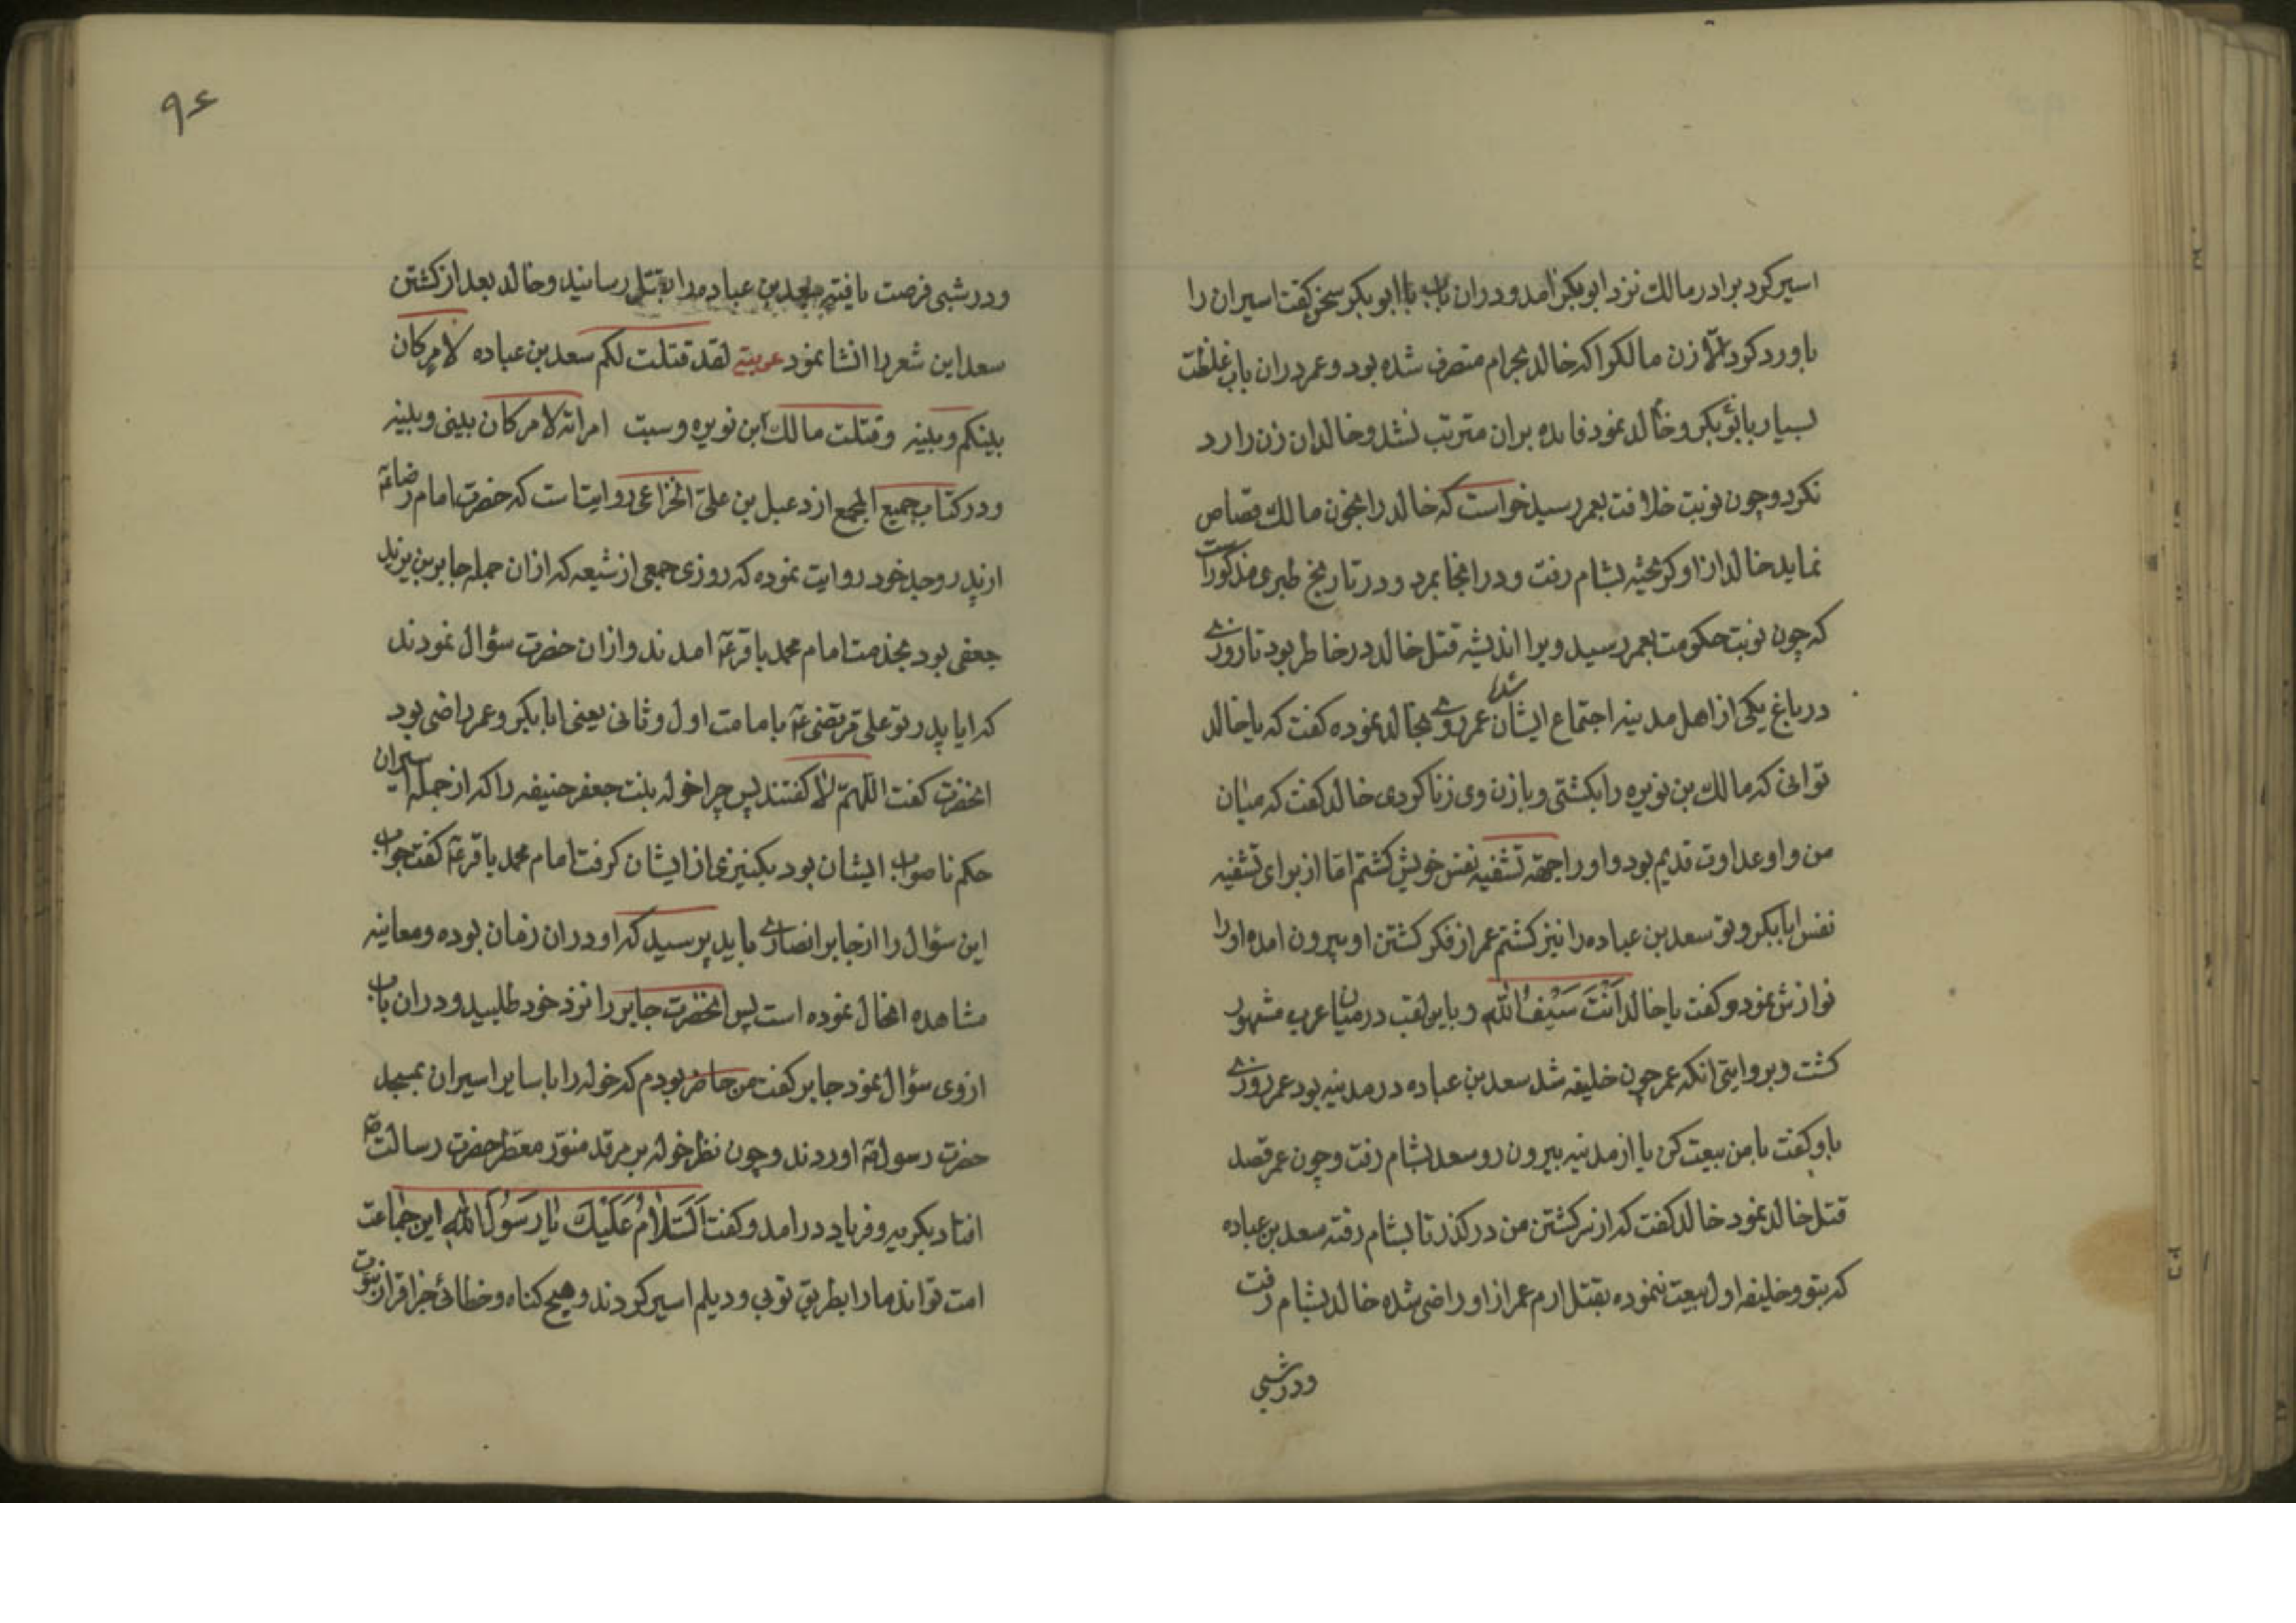 اسیر کرد برادر مالک نزد ابوبکر امد و دران باب با ابوبکر سخن کفت اسیران را
باو رد کرد الا زن مالکرا که خالد بحرام متصرف شده بود و عمر دران باب غلظت
بسیار با ابوبکر و خالد نمود فایده بران مترتب نشد و خالد ان زن را رد
نکرد و چون نوبت خلافت بعمر رسید خواست که خالد را بخون مالک قصاص
نماید خالد از او کریخته بشام رفت و در انجا بمرد و در تاریخ طبری مذکور است
که چون نوبت حکومت بعمر رسید ویرا اندیشه قتل خالد در خاطر بود تا روزی
در باغ یکی از اهل مدینه اجتماع ایشان شد عمر روی بخالد نموده کفت که یا خالد
توانی که مالک بن نویره را بکشتی و با زن وی زنا کردی خالد کفت که میان
من و او عداوت قدیم بود و او را جهة تشفیه نفس خویش کشتم اما از برای تشفیه
نفس ابابکر و تو سعد بن عباده را نیز کشتم عمر از فکر کشتن او بیرون امده او را
نوازش نمود و کفت یا خالد اَنْتَ سَیْفُ اللّه و باین لقب در میان عرب مشهور
کشت و بروایتی انکه عمر چون خلیفه شد سعد بن عباده در مدینه بود عمر روزی
باو کفت با من بیعت کن یا از مدینه بیرون رو سعد بشام رفت و چون عمر قصد
قتل خالد نمود خالد کفت که از سر کشتن من در کذر تا بشام رفته سعد بن عباده
که بتو و خلیفه اول بیعت ننموده بقتل ارم عمر از او راضی شده خالد بشام رفت
و در شبی
۹۶
و در شبی فرصت یافته سعد بن عباده را بقتل رسانید و خالد بعد از کشتن
سعد این شعر را انشا نمود عربیة لقد قتلت لکم سعد بن عباده لامر کان
بینکم و بینه و قتلت مالک ابن نویره و سبت امراته لامر کان بینی و بینه
و در کتاب جمیع المجمع از دعبل بن علی الخزاعی روایتست که حضرت امام رضا عؑ
از پدر و جد خود روایت نموده که روزی جمعی از شیعه که از ان جمله جابر بن یزید
جعفی بود بخدمت امام محمد باقر عؑ امدند و از ان حضرت سؤال نمودند
که ایا پدر تو علی مرتضی عؑ بامامت اول و ثانی یعنی ابابکر و عمر راضی بود
انحضرت کفت اللهمّ لا کفتند پس چرا خوله بنت جعفر حنیفه را که از جمله اسیران
حکم ناصواب ایشان بود بکنیزی از ایشان کرفت امام محمد باقر عؑ کفت جواب
این سؤال را از جابر انصاری باید پرسید که او دران زمان بوده و معاینه
مشاهده انحال نموده است پس انحضرت جابر را نزد خود طلبید و دران باب
از وی سؤال نمود جابر کفت من حاضر بودم که خوله را با سایر اسیران بمسجد
حضرت رسول صؑ اوردند و چون نظر خوله بر مرقد منوّر معطر حضرت رسالت صؑ
افتاد بکریه و فریاد در امد و کفت اَلسَّلامُ عَلَیْكَ یا رَسُولَ اللّهِ این جماعت
امت تواند ما را بطریق نوبی و دیلم اسیر کردند و هیچ کناه و خطائی جز اقرار بنبوت